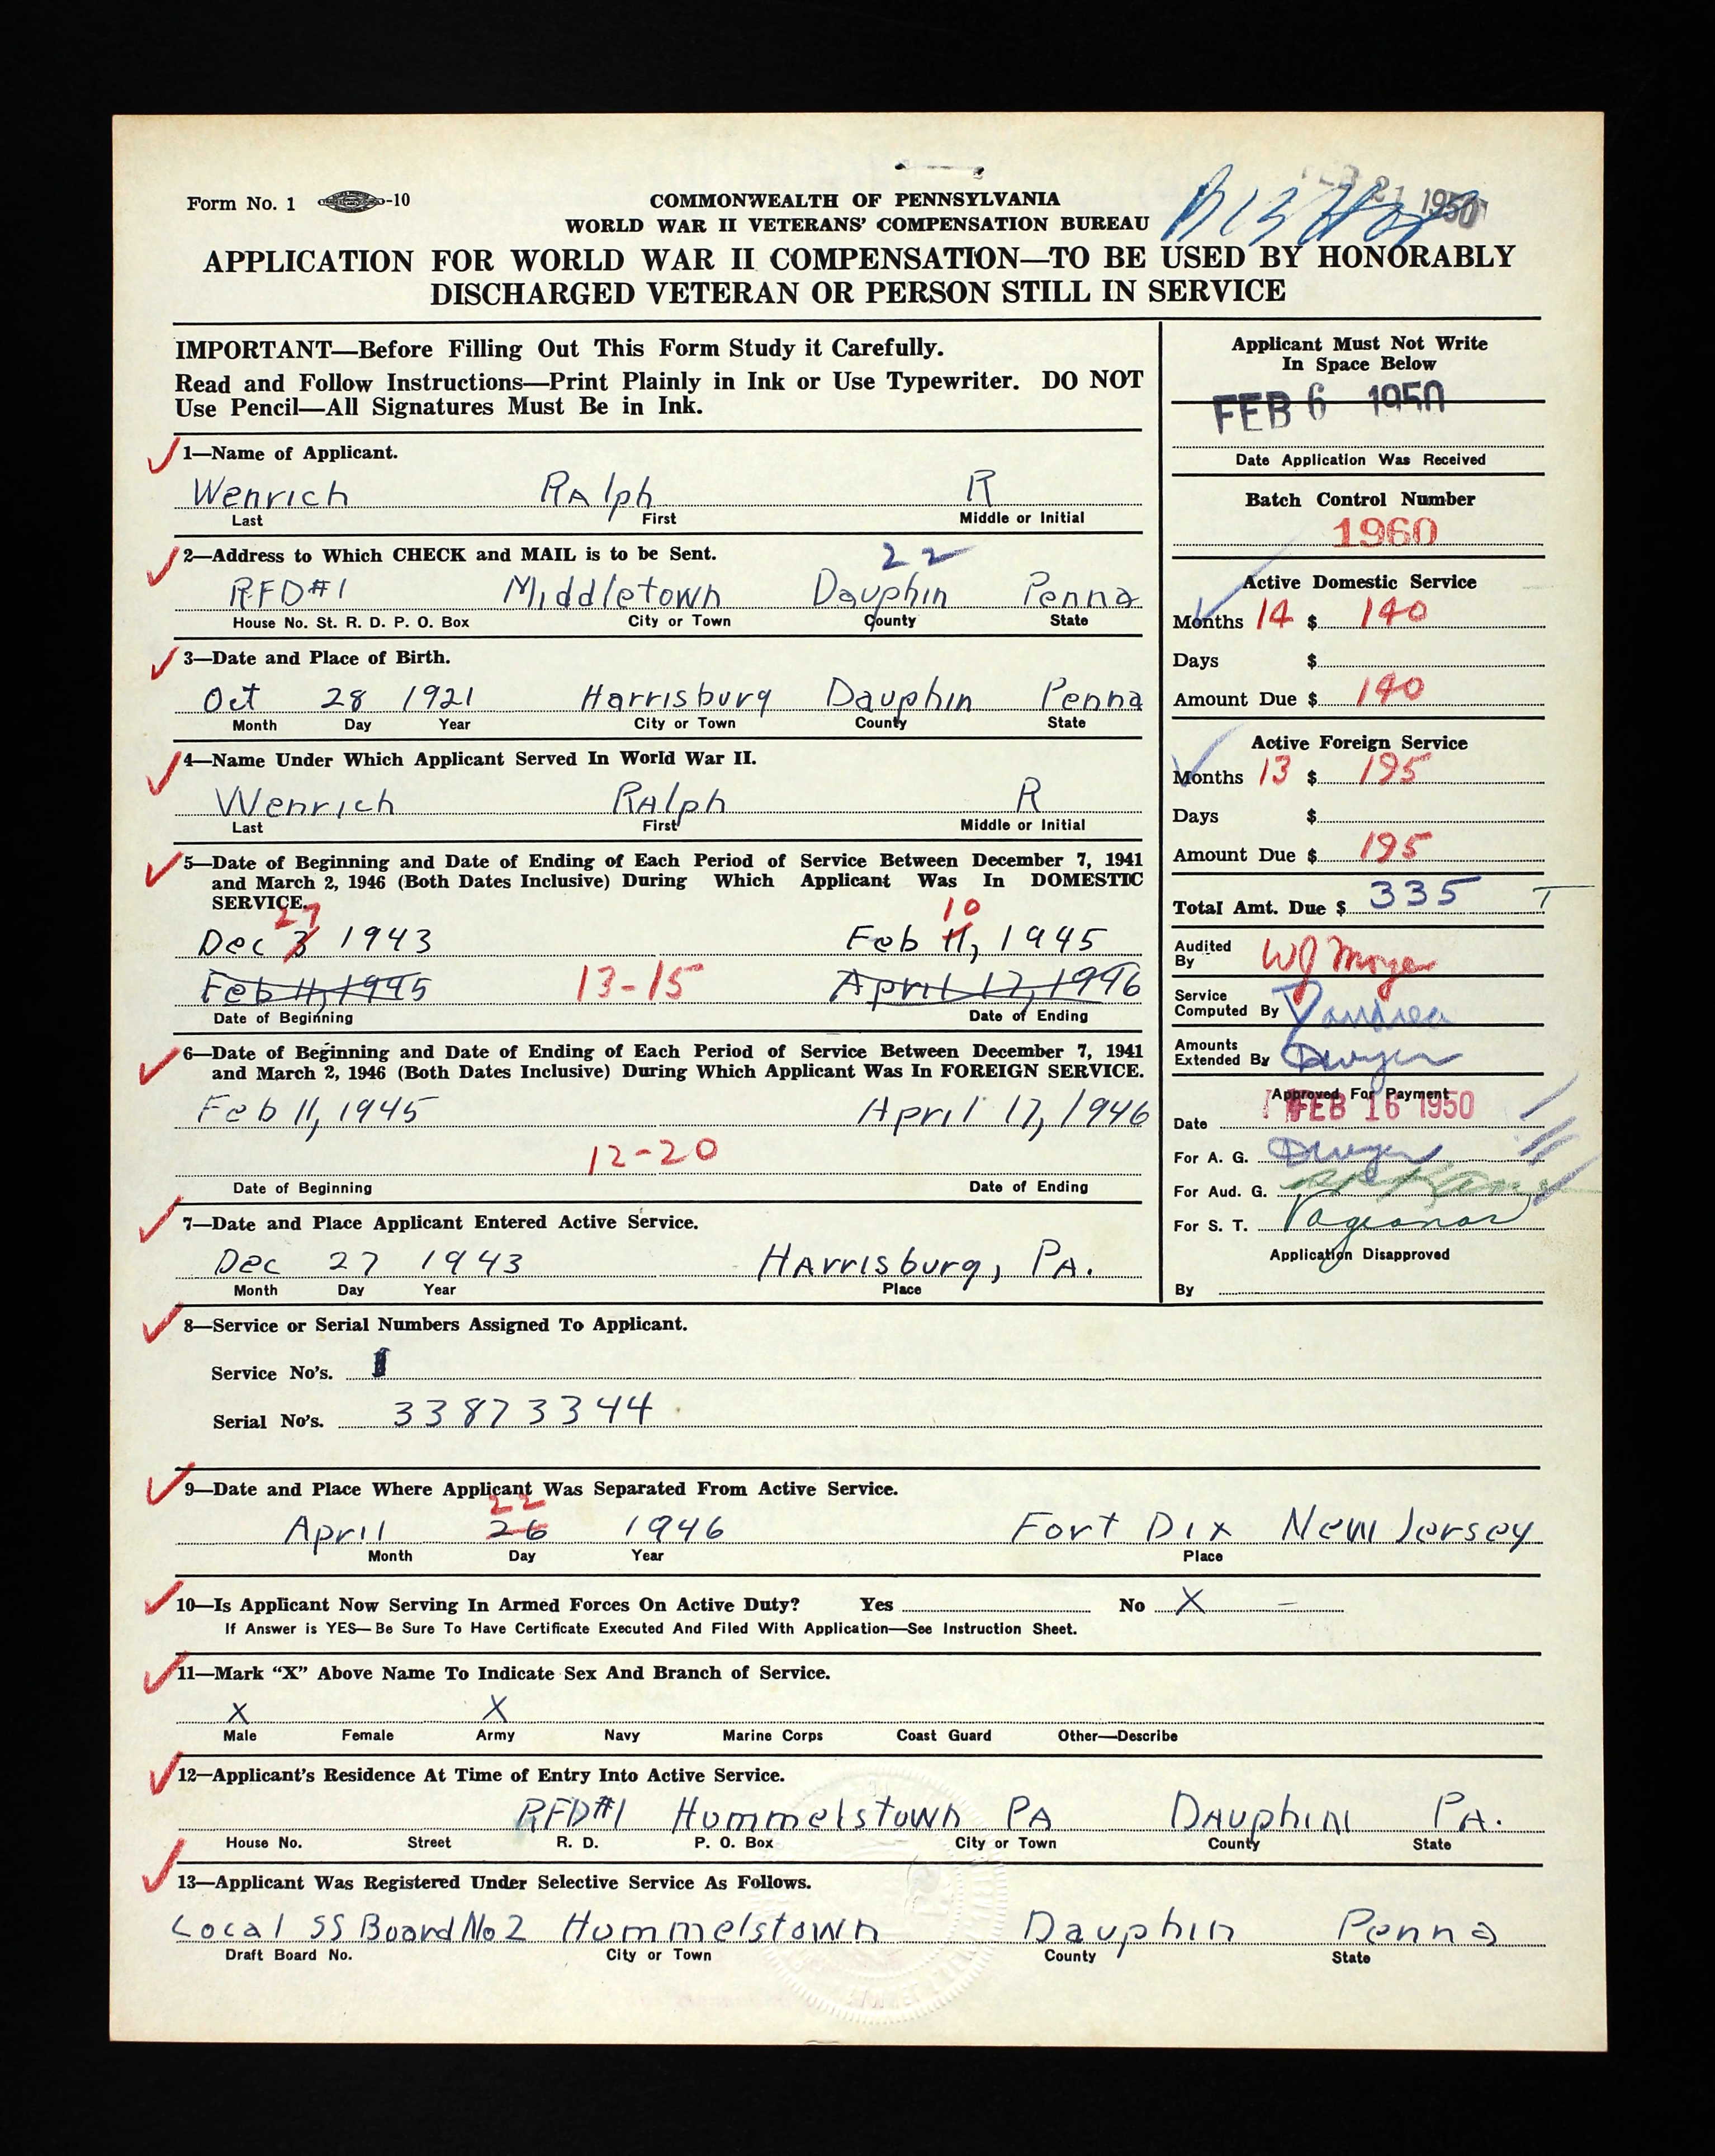 FEB 21 1950
Form No. 1 -10
COMMONWEALTH OF PENNSYLVANIA
WORLD WAR II VETERANS' COMPENSATION BUREAU
APPLICATION FOR WORLD WAR II COMPENSATION—TO BE USED BY HONORABLY
DISCHARGED VETERAN OR PERSON STILL IN SERVICE
IMPORTANT—Before Filling Out This Form Study it Carefully.
Read and Follow Instructions—Print Plainly in Ink or Use Typewriter. DO NOT
Use Pencil—All Signatures Must Be in Ink.
1—Name of Applicant.
Wenrich RAlph R
Last First Middle or Initial
2—Address to Which CHECK and MAIL is to be Sent.
22
RFD#1 Middletown Dauphin Penna
House No. St. R. D. P. O. Box City or Town County State
3—Date and Place of Birth.
Oct 28 1921 Harrisburg Dauphin Penna
Month Day Year City or Town County State
4—Name Under Which Applicant Served In World War II.
Wenrich RAlph R
Last First Middle or Initial
5—Date of Beginning and Date of Ending of Each Period of Service Between December 7, 1941
and March 2, 1946 (Both Dates Inclusive) During Which Applicant Was In DOMESTIC
SERVICE.
27 10
Dec 3 1943 Feb 11, 1945
Feb 11, 1945 13-15 April 17, 1946
Date of Beginning Date of Ending
6—Date of Beginning and Date of Ending of Each Period of Service Between December 7, 1941
and March 2, 1946 (Both Dates Inclusive) During Which Applicant Was In FOREIGN SERVICE.
Feb 11, 1945 April 17, 1946
12-20
Date of Beginning Date of Ending
7—Date and Place Applicant Entered Active Service.
Dec 27 1943 HArrisburg, PA.
Month Day Year Place
Applicant Must Not Write
In Space Below
FEB 6 1950
Date Application Was Received
Batch Control Number
1960
Active Domestic Service
Months 14 $ 140
Days $
Amount Due $ 140
Active Foreign Service
Months 13 $ 195
Days $
Amount Due $ 195
Total Amt. Due $ 335 T
Audited
By WJ Moyer
Service
Computed By
Amounts
Extended By Dwyer
Approved For Payment
Date FEB 16 1950
For A. G. Dwyer
For Aud. G.
For S. T.
Application Disapproved
By
8—Service or Serial Numbers Assigned To Applicant.
Service No's.
Serial No's. 33873344
9—Date and Place Where Applicant Was Separated From Active Service.
22
April 26 1946 Fort Dix New Jersey
Month Day Year Place
10—Is Applicant Now Serving In Armed Forces On Active Duty? Yes No X
If Answer is YES—Be Sure To Have Certificate Executed And Filed With Application—See Instruction Sheet.
11—Mark "X" Above Name To Indicate Sex And Branch of Service.
X X
Male Female Army Navy Marine Corps Coast Guard Other—Describe
12—Applicant's Residence At Time of Entry Into Active Service.
RFD#1 Hummelstown PA DAuphin PA.
House No. Street R. D. P. O. Box City or Town County State
13—Applicant Was Registered Under Selective Service As Follows.
Local SS Board No 2 Hummelstown Dauphin Penna
Draft Board No. City or Town County State